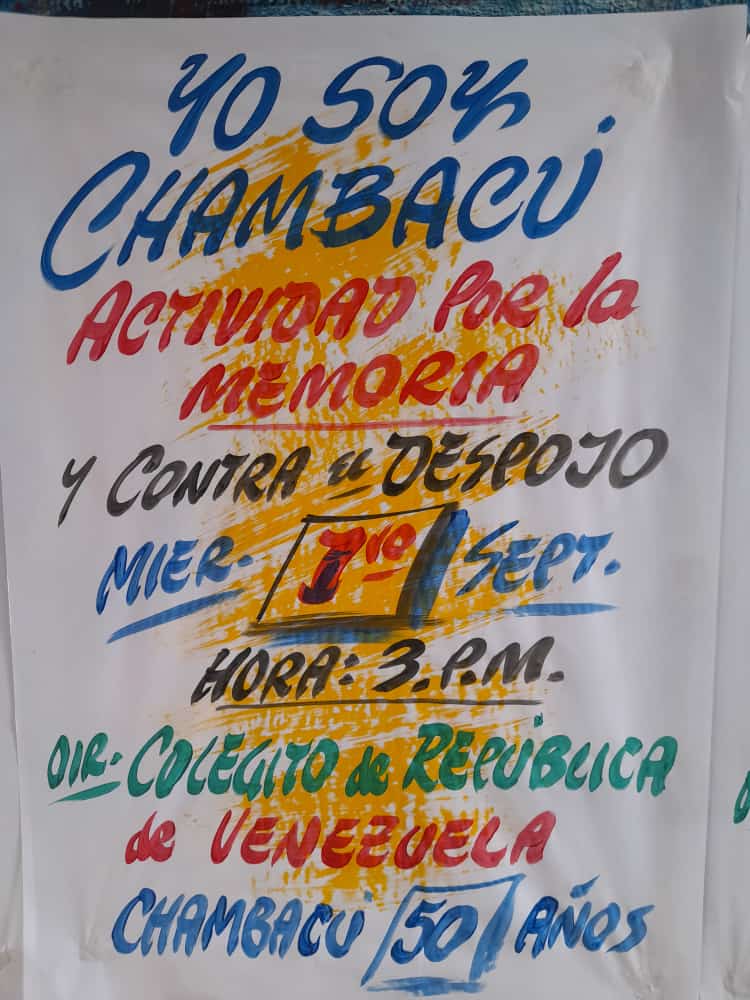 YO SOY
CHAMBACÚ
ACTIVIDAD POR la
MEMORIA
Y CONTRA EL DESPOJO
MIER. 1ro SEPT.
HORA: 3. P.M.
DIR. COLEGITO de REPÚBLICA
de VENEZUELA
CHAMBACÚ 50 AÑOS